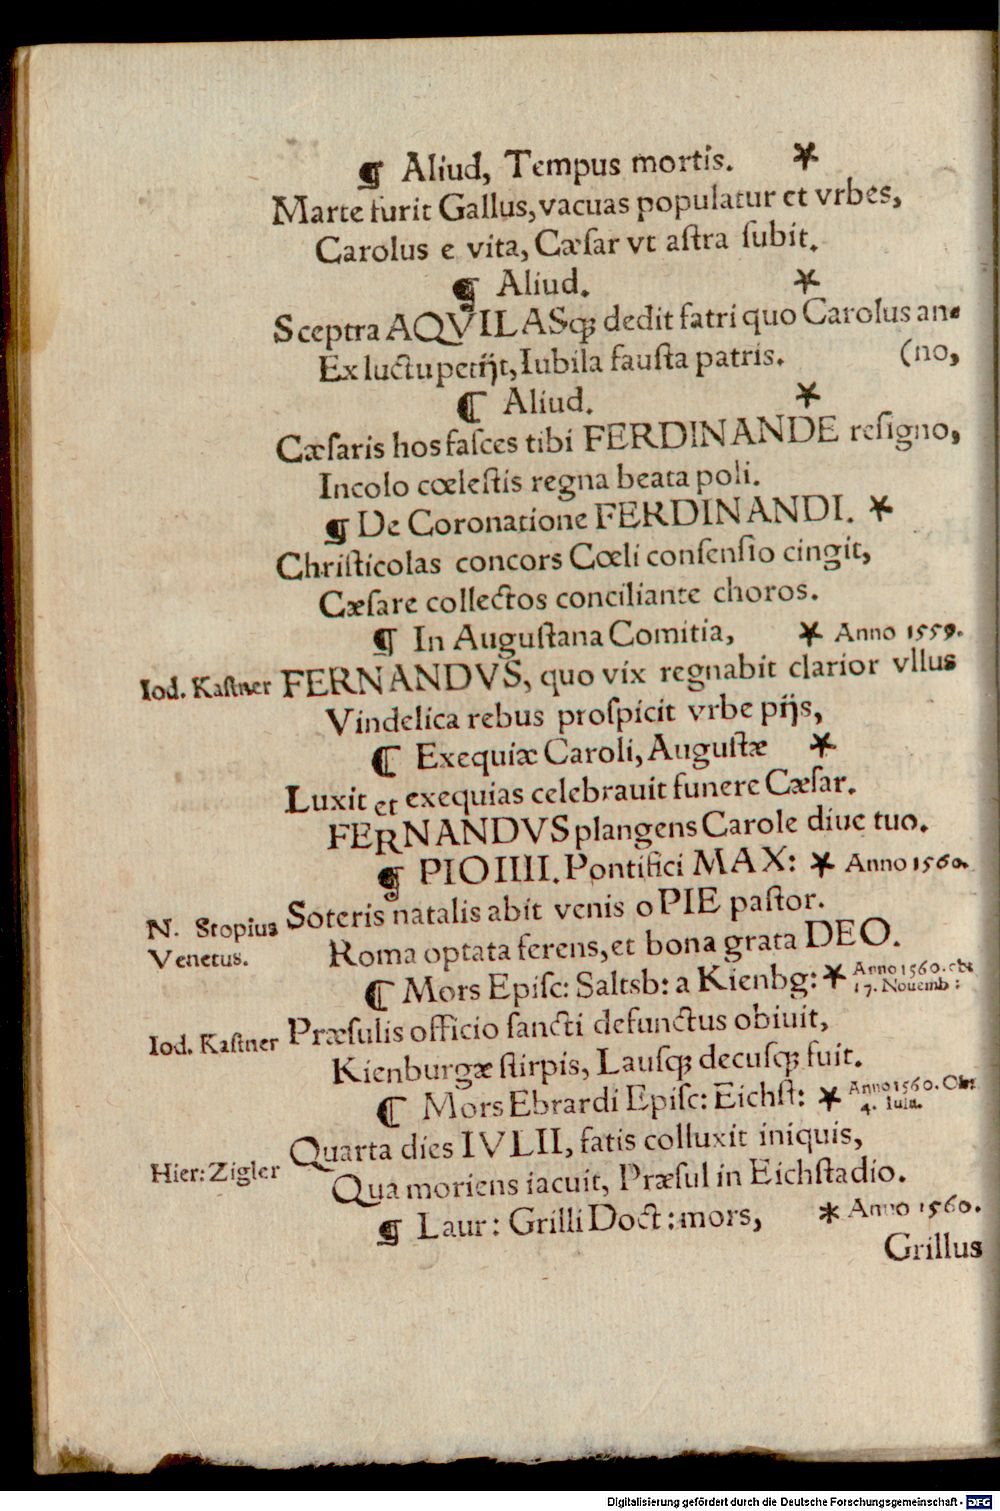 ¶ Aliud, Tempus mortis. *
Marte furit Gallus, vacuas populatur et vrbes,
Carolus e vita, Cæsar vt astra subit.
¶ Aliud. *
Sceptra AQVILASq; dedit fatri quo Carolus an-
Ex luctu petijt, Iubila fausta patris. (no,
¶ Aliud. *
Cæsaris hos fasces tibi FERDINANDE resigno,
Incolo cœlestis regna beata poli.
¶ De Coronatione FERDINANDI. *
Christicolas concors Cœli consensio cingit,
Cæsare collectos conciliante choros.
¶ In Augustana Comitia, * Anno 1559.
Iod. Kastner FERNANDVS, quo vix regnabit clarior vllus
Vindelica rebus prospicit vrbe pijs,
¶ Exequiæ Caroli, Augustæ *
Luxit et exequias celebrauit funere Cæsar.
FERNANDVS plangens Carole diue tuo.
¶ PIO IIII. Pontifici MAX: * Anno 1560.
N. Stopius Soteris natalis abit venis o PIE pastor.
Venetus. Roma optata ferens, et bona grata DEO.
¶ Mors Episc: Saltsb: a Kienbg: * Anno 1560. obt
17. Nouemb:
Iod. Kastner Præsulis officio sancti defunctus obiuit,
Kienburgæ stirpis, Lausq; decusq; fuit.
¶ Mors Ebrardi Episc: Eichst: * Anno 1560. Obt
4. Iulii.
Quarta dies IVLII, fatis colluxit iniquis,
Hier: Zigler Qua moriens iacuit, Præsul in Eichstadio.
¶ Laur: Grilli Doct: mors, * Anno 1560.
Grillus
Digitalisierung gefördert durch die Deutsche Forschungsgemeinschaft - DFG